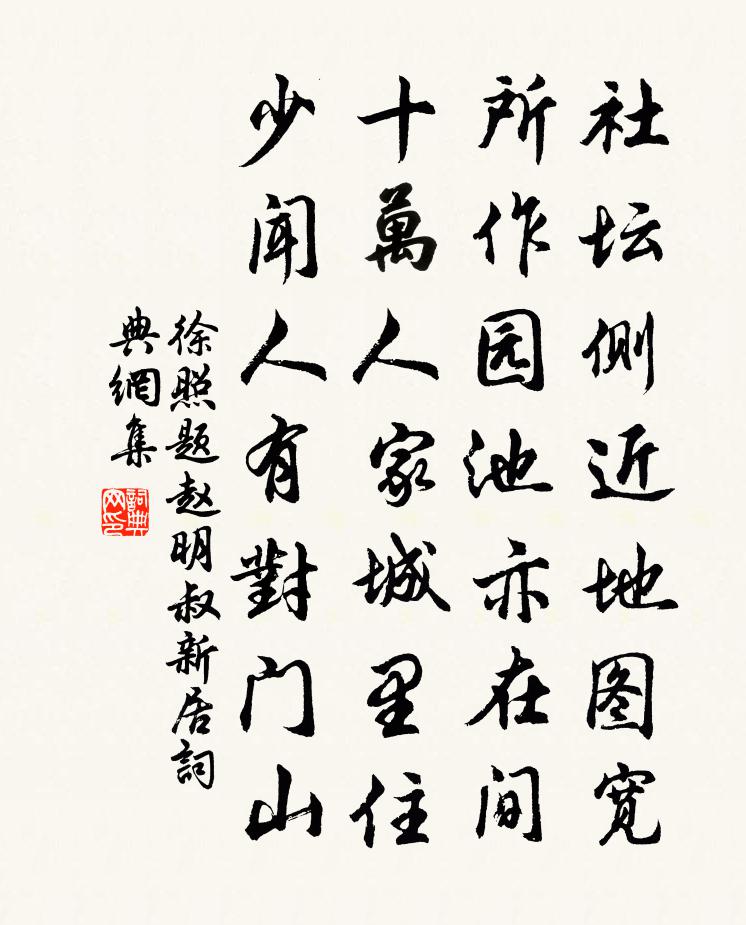 社坛侧近地图宽
所作园池亦在间
十萬人家城里住
少闻人有對门山
徐照题赵明叔新居詞
典網集
詞典网印